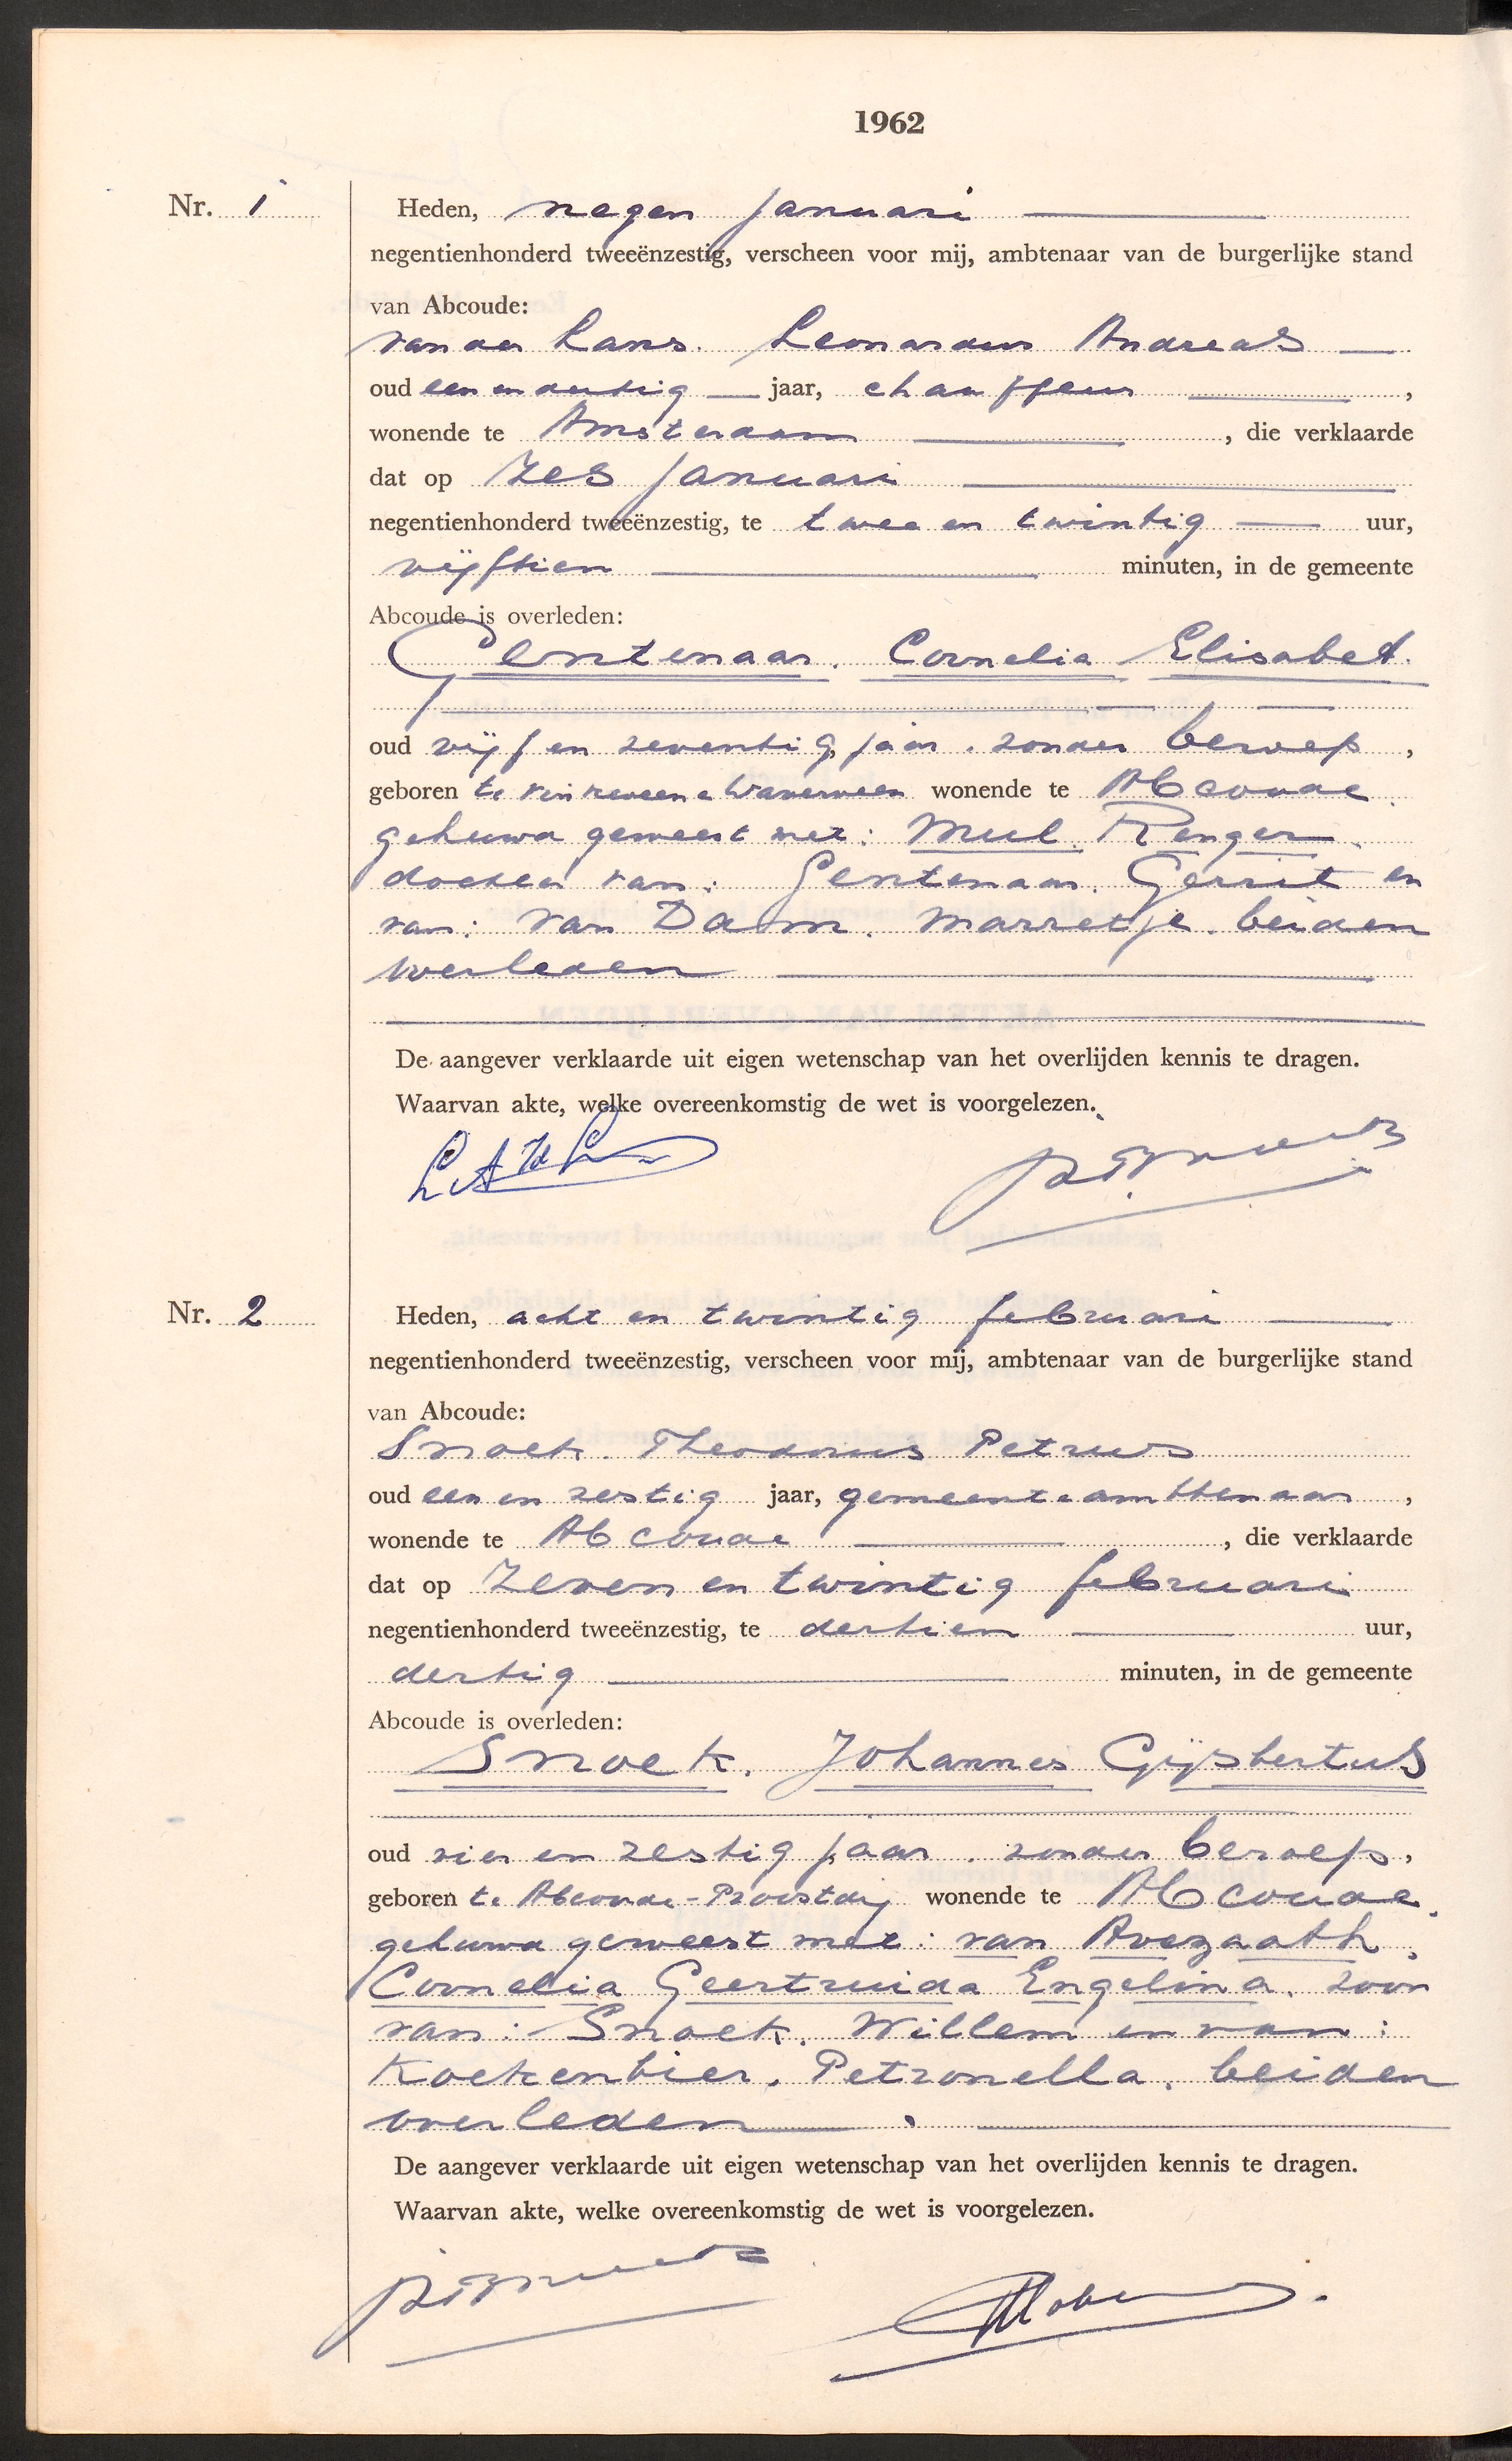 1962
Nr. 1
Heden, negen januari
negentienhonderd tweeënzestig, verscheen voor mij, ambtenaar van de burgerlijke stand
van Abcoude:
van der Lans. Leonardus Andreas
oud een en dertig jaar, chauffeur ,
wonende te Amsterdam , die verklaarde
dat op zes januari
negentienhonderd tweeënzestig, te twee en twintig uur,
vijftien minuten, in de gemeente
Abcoude is overleden:
Gentenaar. Cornelia Elisabet.
oud vijf en zeventig jaar. zonder beroep ,
geboren te Vinkeveen e Waverveen wonende te Abcoude.
gehuwd geweest met: Mul. Renger.
dochter van: Gentenaar. Gerrit en
van: van Dam. Marretje. beiden
overleden
De aangever verklaarde uit eigen wetenschap van het overlijden kennis te dragen.
Waarvan akte, welke overeenkomstig de wet is voorgelezen.
Nr. 2
Heden, acht en twintig februari
negentienhonderd tweeënzestig, verscheen voor mij, ambtenaar van de burgerlijke stand
van Abcoude:
Snoek. Theodorus Petrus
oud een en zestig jaar, gemeenteambtenaar ,
wonende te Abcoude , die verklaarde
dat op zeven en twintig februari
negentienhonderd tweeënzestig, te dertien uur,
dertig minuten, in de gemeente
Abcoude is overleden:
Snoek. Johannes Gijsbertus
oud vier en zestig jaar. zonder beroep,
geboren te Abcoude-Proostdij wonende te Abcoude.
gehuwd geweest met: van Avezaath.
Cornelia Geertruida Engelina. zoon
van: Snoek. Willem en van:
Koekenbier. Petronella. beiden
overleden.
De aangever verklaarde uit eigen wetenschap van het overlijden kennis te dragen.
Waarvan akte, welke overeenkomstig de wet is voorgelezen.